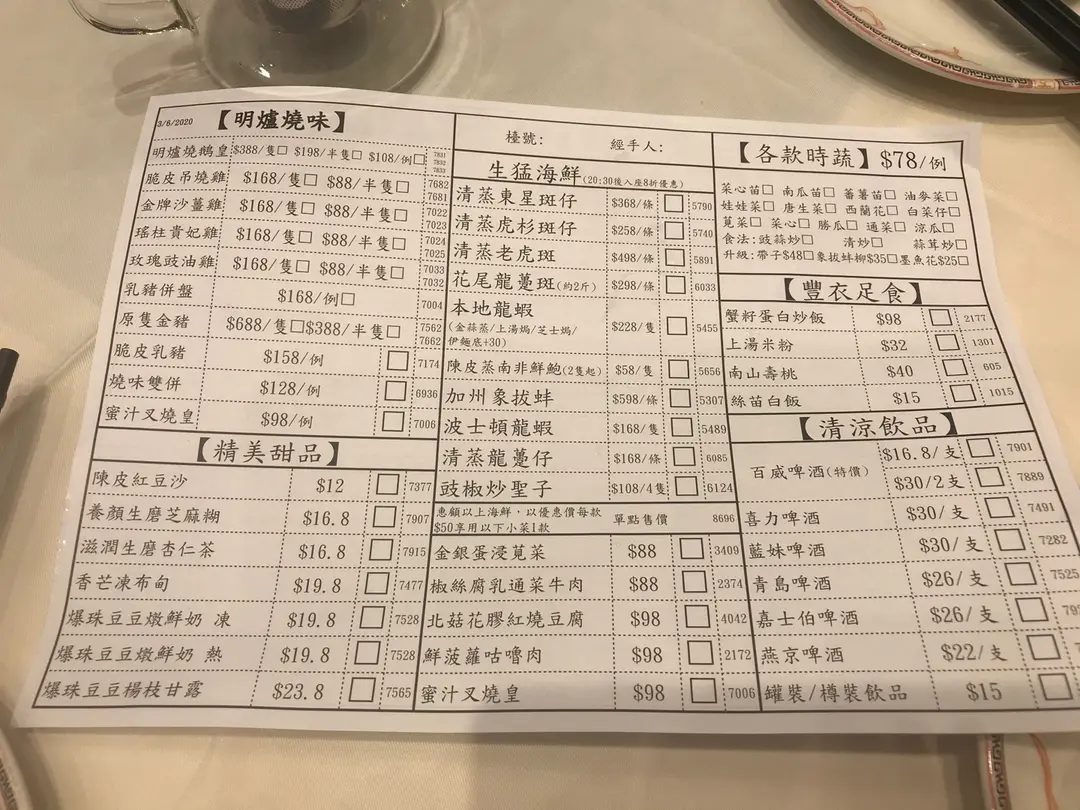 3/6/2020 【明爐燒味】
明爐燒鵝皇 $388/隻□ $198/半隻□ $108/例□ 7831 7832 7833
脆皮吊燒雞 $168/隻□ $88/半隻□ 7682 7681
金牌沙薑雞 $168/隻□ $88/半隻□ 7022 7023
瑤柱貴妃雞 $168/隻□ $88/半隻□ 7024 7025
玫瑰豉油雞 $168/隻□ $88/半隻□ 7033 7032
乳豬併盤 $168/例□ 7004
原隻金豬 $688/隻□$388/半隻□ 7562 7662
脆皮乳豬 $158/例 □ 7174
燒味雙併 $128/例 □ 6936
蜜汁叉燒皇 $98/例 □ 7006
【精美甜品】
陳皮紅豆沙 $12 □ 7377
養顏生磨芝麻糊 $16.8 □ 7907
滋潤生磨杏仁茶 $16.8 □ 7915
香芒凍布甸 $19.8 □ 7477
爆珠豆豆燉鮮奶 凍 $19.8 □ 7528
爆珠豆豆燉鮮奶 熱 $19.8 □ 7528
爆珠豆豆楊枝甘露 $23.8 □ 7565
檯號: 經手人:
生猛海鮮(20:30後入座8折優惠)
清蒸東星斑仔 $368/條 □ 5790
清蒸虎杉斑仔 $258/條 □ 5740
清蒸老虎斑 $498/條 □ 5891
花尾龍躉斑(約2斤) $298/條 □ 6033
本地龍蝦
(金蒜蒸/上湯焗/芝士焗/
伊麵底+30) $228/隻 □ 5455
陳皮蒸南非鮮鮑(2隻起) $58/隻 □ 5656
加州象拔蚌 $598/條 □ 5307
波士頓龍蝦 $168/隻 □ 5489
清蒸龍躉仔 $168/條 □ 6085
豉椒炒聖子 $108/4隻 □ 6124
惠顧以上海鮮，以優惠價每款
$50享用以下小菜1款 單點售價 8696
金銀蛋浸莧菜 $88 □ 3409
椒絲腐乳通菜牛肉 $88 □ 2374
北菇花膠紅燒豆腐 $98 □ 4042
鮮菠蘿咕嚕肉 $98 □ 2172
蜜汁叉燒皇 $98 □ 7006
【各款時蔬】$78/例
菜心苗□ 南瓜苗□ 蕃薯苗□ 油麥菜□
娃娃菜□ 唐生菜□ 西蘭花□ 白菜仔□
莧菜□ 菜心□ 勝瓜□ 通菜□ 涼瓜□
食法:豉蒜炒□ 清炒□ 蒜茸炒□
升級:帶子$48□象拔蚌柳$35□墨魚花$25□
【豐衣足食】
蟹籽蛋白炒飯 $98 □ 2177
上湯米粉 $32 □ 1301
南山壽桃 $40 □ 605
絲苗白飯 $15 □ 1015
【清涼飲品】
百威啤酒(特價) $16.8/支 □ 7901
$30/2支 □ 7889
喜力啤酒 $30/支 □ 7491
藍妹啤酒 $30/支 □ 7282
青島啤酒 $26/支 □ 7525
嘉士伯啤酒 $26/支 □
燕京啤酒 $22/支 □
罐裝/樽裝飲品 $15 □